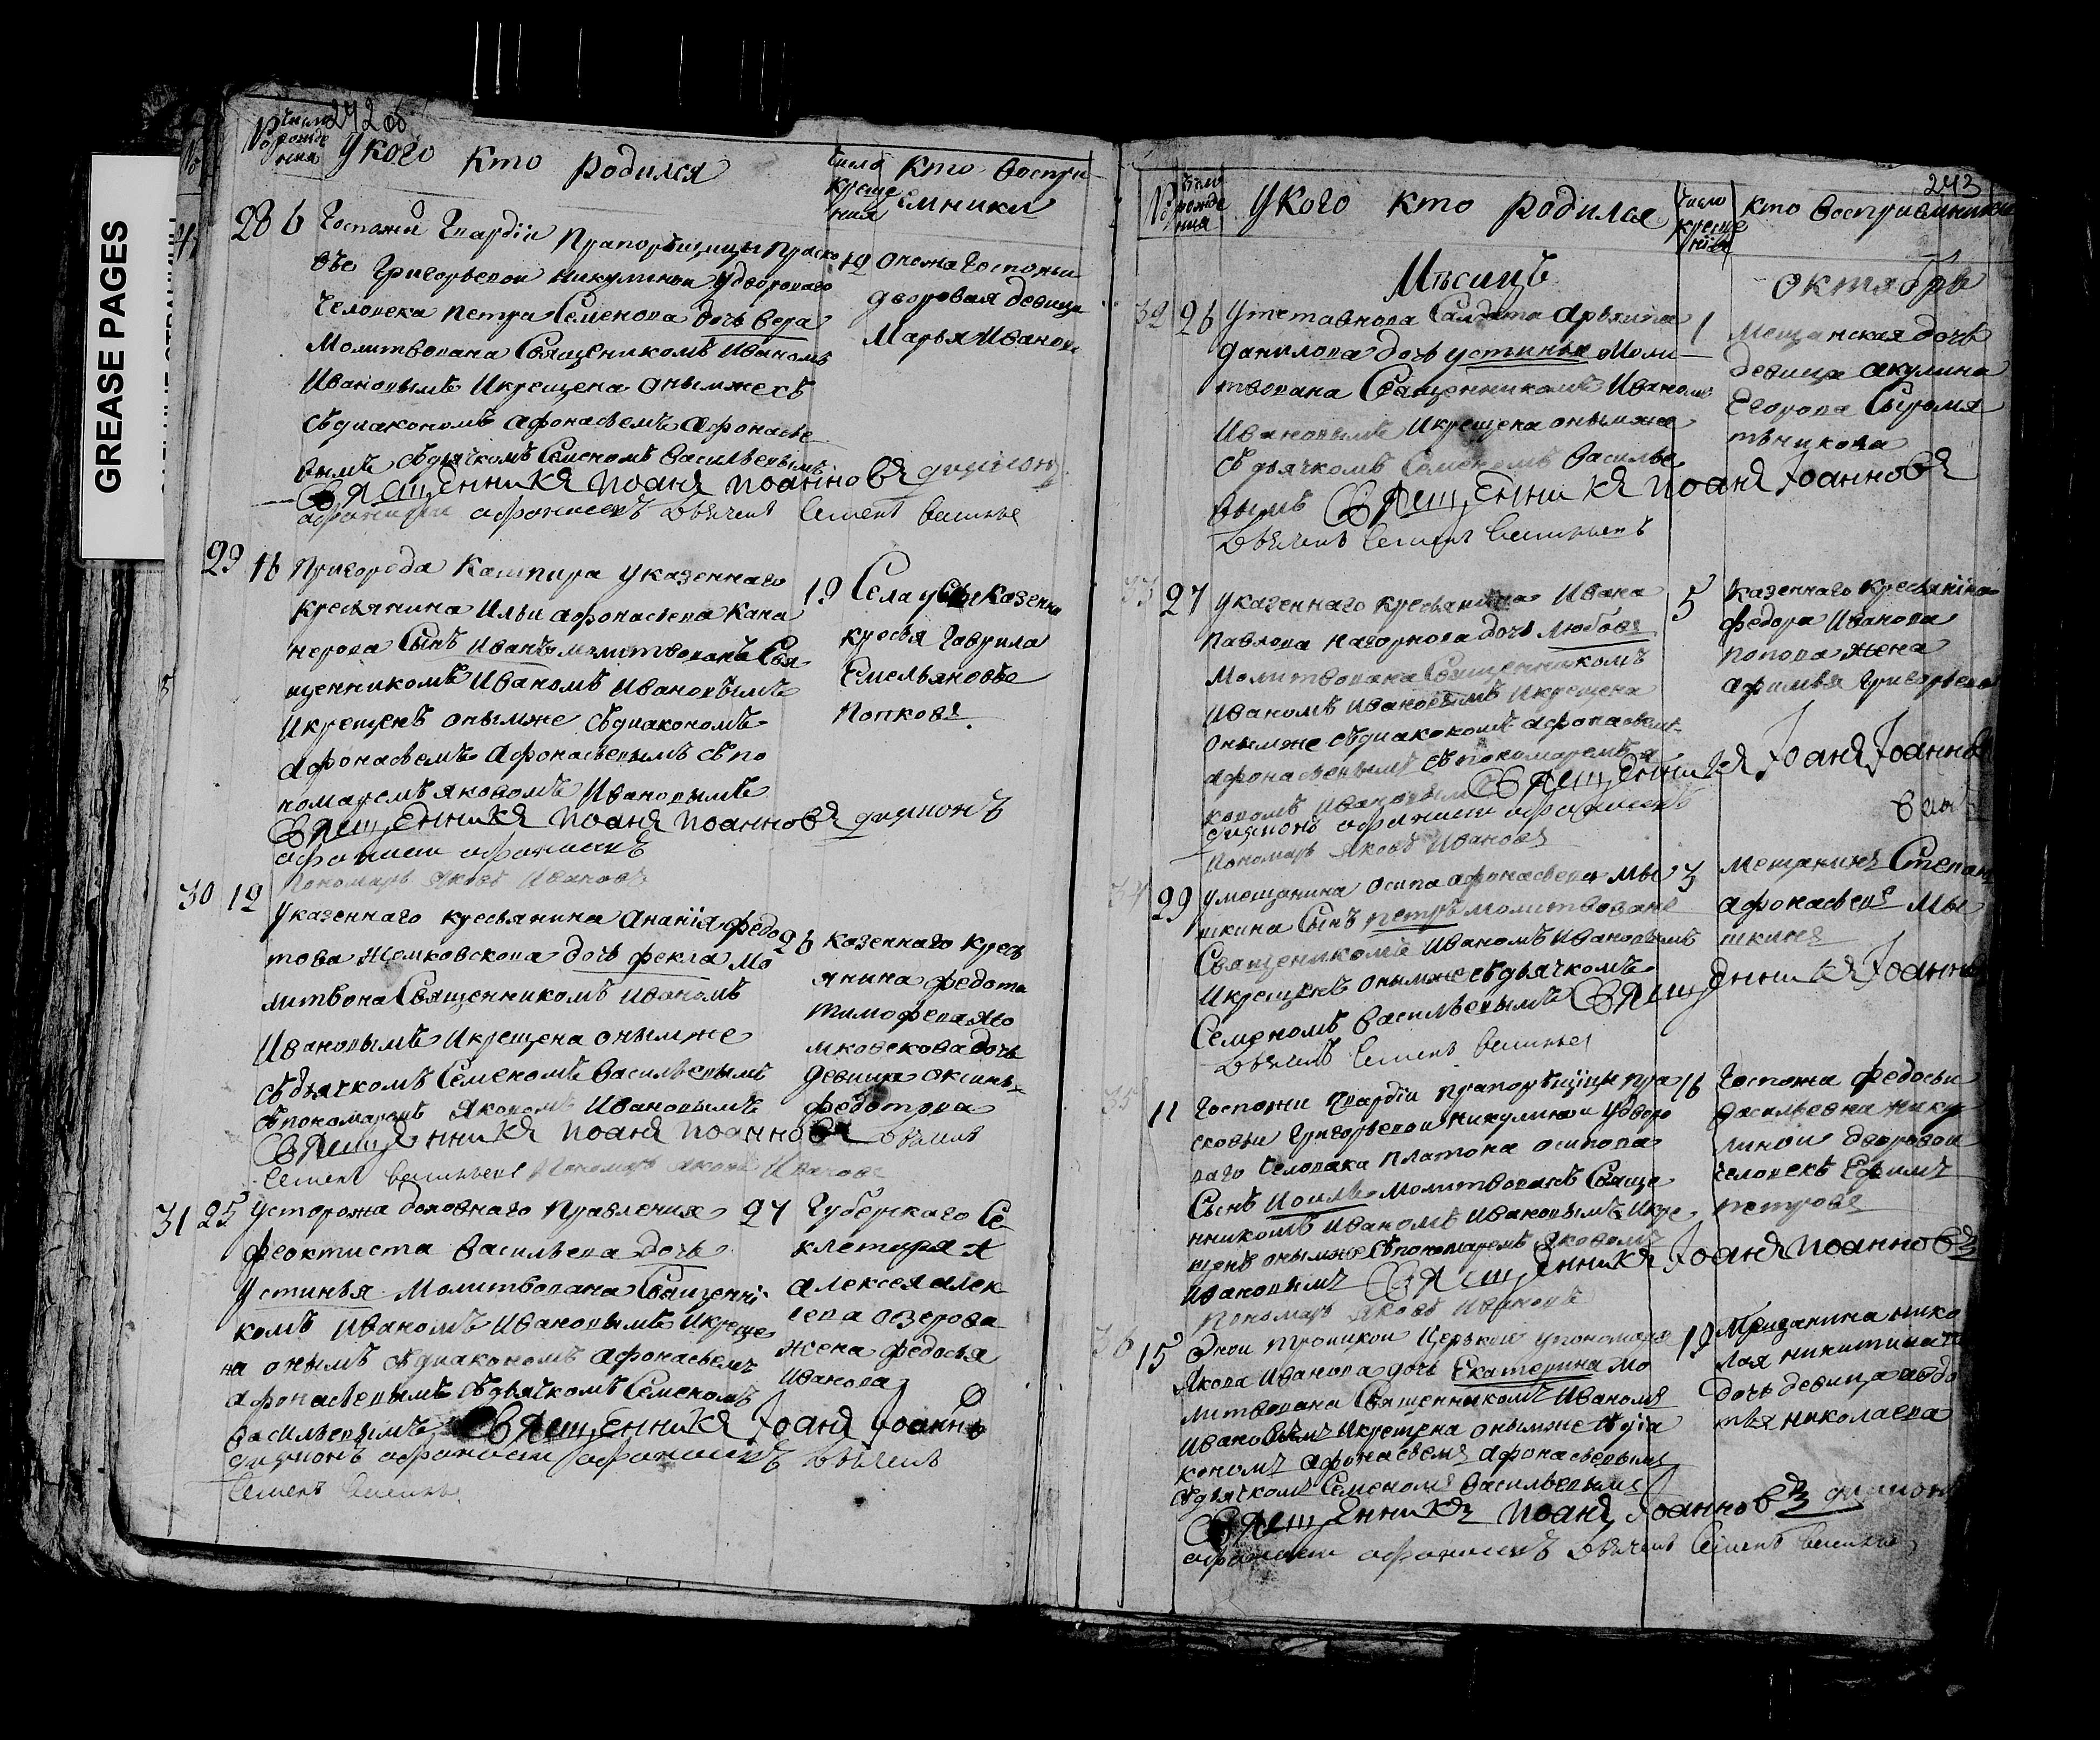 GREASE PAGES
242 об.
№
число рожде ния
У кого кто родился
число креще ния
кто воспри емники
28 6 Госпожи Гвардіи Прапорщицы Праско
вье Григорьевои никулинои у дворового
человека Петра Семенова дочь вера
Молитвована Священикомъ Иваномъ
Ивановымъ И крещена онымже съ
съ диакономъ афонасьемъ афонасье
вымъ съ дьячкомъ Семеномъ Васильевымъ
Священникъ Иоанъ Иоанновъ диаконъ
афонасеи афонасиевъ Дьячекъ Семенъ Василье
19 оноже Госпожи
дворовая девица
Марья Иванова
29 16 Пригорода Кашпира у казеннаго
крестьянина Ильи афонасьева Кана
нерова Сынъ Иванъ молитвованъ Свя
щенникомъ Иваномъ Ивановымъ
И крещенъ онымже съ диакономъ
афонасьемъ Афонасьевымъ съ по
номаремъ яковомъ Ивановымъ
Священникъ Иоанъ Иоанновъ диаконъ
афонасеи афонасиевъ
Пономарь Яковъ Ивановъ
19 Села казенна
кресья Гаврила
Емельяновъ
Попковъ
30 12 У казеннаго кресьянина Ананія федо
това Жемковскова дочь фекла мо
литвона Священникомъ Иваномъ
Ивановымъ И крещена онымже
съ дьячкомъ Семеномъ Васильевымъ
съ пономаремъ Яковомъ Ивановымъ
Священникъ Иоанъ Иоанновъ Дьячекъ
Семенъ Васильевъ Пономарь Яковъ Ивановъ
26 казеннаго кресь
янина федота
Тимофеева
мковскова дочь
девица Аксинья
федотова
31 25 У сторожа Правления
феоктиста Васильева дочь
Устинья Молитвована Священни
комъ Иваномъ Ивановымъ И креще
на онымъ съ диакономъ афонасьемъ
афонасьевымъ съ дьячкомъ Семеномъ
Васильевымъ Священникъ Иоанъ Иоанно
диаконъ афонасеи афонасиевъ Дьячекъ
Семенъ Василье
27 Губерскаго Се
клетаря
алексея алек
сева озерова
жена федосья
Иванова
243
№
число рожде ния
У кого кто родился
число креще ния
кто восприемники
Месяцъ октябрь
32 26 У отставнова Салдата Архипа
данилова дочь устинья Моли
твована Священникомъ Иваномъ
Ивановымъ И крещена онымже
съ дьячкомъ Семеномъ Василье
вымъ Священникъ Иоанъ Иоанновъ
Дьячекъ Семенъ Васильевъ
1 Мещанская дочь
девица акулина
Егорова Сыромя
тникова
33 27 У казеннаго кресьянина Ивана
Павлова нагорнова дочь Любовь
Молитвована Священникомъ
Иваномъ Ивановымъ И крещена
онымже съ диакономъ афонасьемъ
афонасьевымъ съ пономаремъ я
ковомъ Ивановымъ Священникъ Иоанъ Иоаннов
диаконъ афонасеи афонасиевъ
Пономарь Яковъ Ивановъ
5 казеннаго кресьянина
федора Иванова
попова жена
афимья Григорьева
34 29 У мещанина осипа афонасьева мы
шкина Сынъ петръ молитвованъ
Священикомъ Иваномъ Ивановымъ
И крещенъ онымже съ дьячкомъ
Семеномъ Васильевымъ Священникъ Иоанн
Дьячекъ Семенъ Василье
3 Мещанинъ Степан
афонасьевъ Мы
шкинъ
35 11 Госпожи Гвардіи прапорщицы Пра
сковьи Григорьевои никулинои у дворо
ваго Человека Платона осипова
Сынъ Иоиль Молитвованъ Свяще
нникомъ Иваномъ Ивановымъ И кре
щенъ онымже съ пономаремъ Яковомъ
Ивановымъ Священникъ Иоанъ Иоанновъ
Пономарь Яковъ Ивановъ
16 Госпожа федосьи
васильевна нику
линои дворовои
человекъ Ефимъ
петровъ
36 15 Онои Троицкои Церькви у пономаря
Якова Иванова дочь Екатерина мо
литвована Священникомъ Иваномъ
Ивановымъ И крещена онымже съ діа
кономъ афонасьемъ афонасьевымъ
съ дьячкомъ Семеномъ Васильевымъ
Священникъ Иоанъ Иоанновъ диакон
афонасеи афонасиевъ Дьячекъ Семенъ Василье
19 Мещанина нико
лая никитина
дочь девица авдо
тья николаева